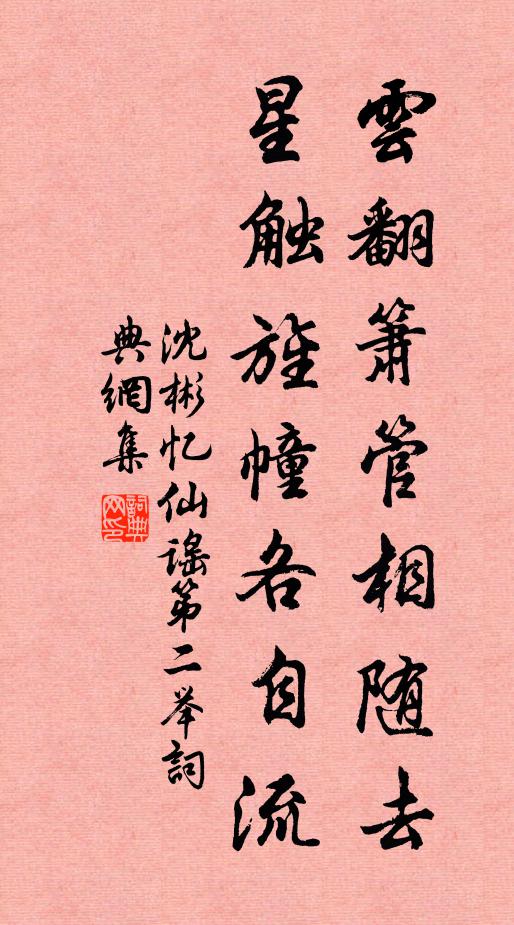 雲翻箫管相随去
星触旌幢各自流
沈彬忆仙謠第二举詞
典網集
詞典网印